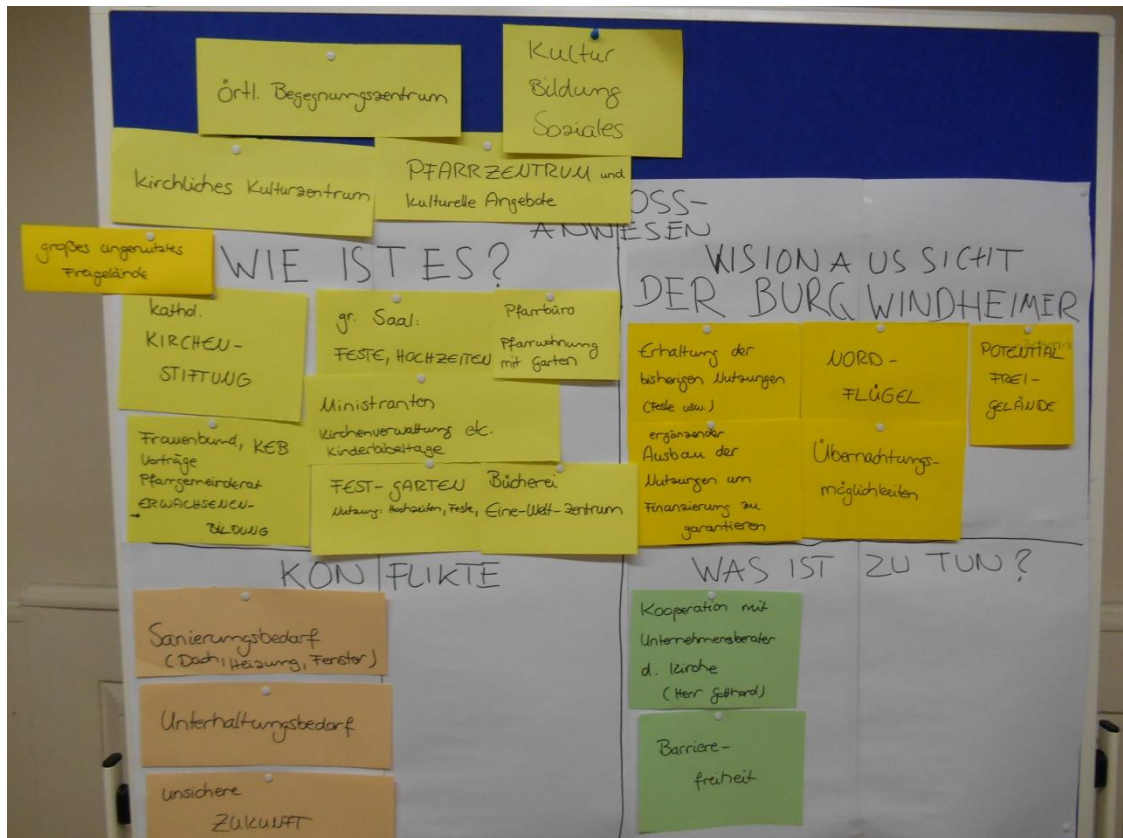 örtl. Begegnungszentrum
Kultur
Bildung
Soziales
kirchliches Kulturzentrum
PFARRZENTRUM und
kulturelle Angebote
OSS-
ANWESEN
großes ungenutztes
Freigelände
WIE IST ES?
kathol.
KIRCHEN-
STIFTUNG
gr. Saal:
FESTE, HOCHZEITEN
Pfarrbüro
Pfarrwohnung
mit Garten
Ministranten
Kirchenverwaltung etc.
Kinderbibeltage
Frauenbund, KEB
Vorträge
Pfarrgemeinderat
→ ERWACHSENEN-
BILDUNG
FEST-GARTEN
Nutzung: Hochzeiten, Feste,
Bücherei
Eine-Welt-Zentrum
VISION AUS SICHT
DER BURGWINDHEIMER
Erhaltung der
bisherigen Nutzungen
(Feste usw.)
NORD-
FLÜGEL
POTENTIAL
FREI-
GELÄNDE
ergänzender
Ausbau der
Nutzungen um
Finanzierung zu
garantieren
Übernachtungs-
möglichkeiten
KONFLIKTE
Sanierungsbedarf
(Dach, Heizung, Fenster)
Unterhaltungsbedarf
unsichere
ZUKUNFT
WAS IST ZU TUN?
Kooperation mit
Unternehmensberater
d. Kirche
(Herr Gotthard)
Barriere-
freiheit